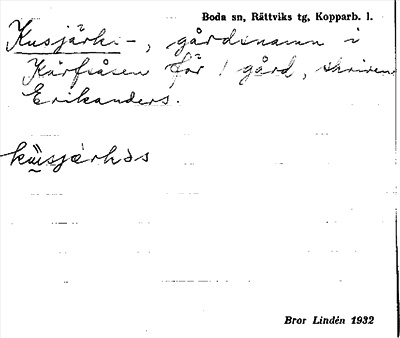 Boda sn, Rättviks tg, Kopparb. l.
Kusjärk:-, gårdsnamn i
Kärfsåsen för 1 gård, skriven
Erikanders.
Bror Lindén 1932